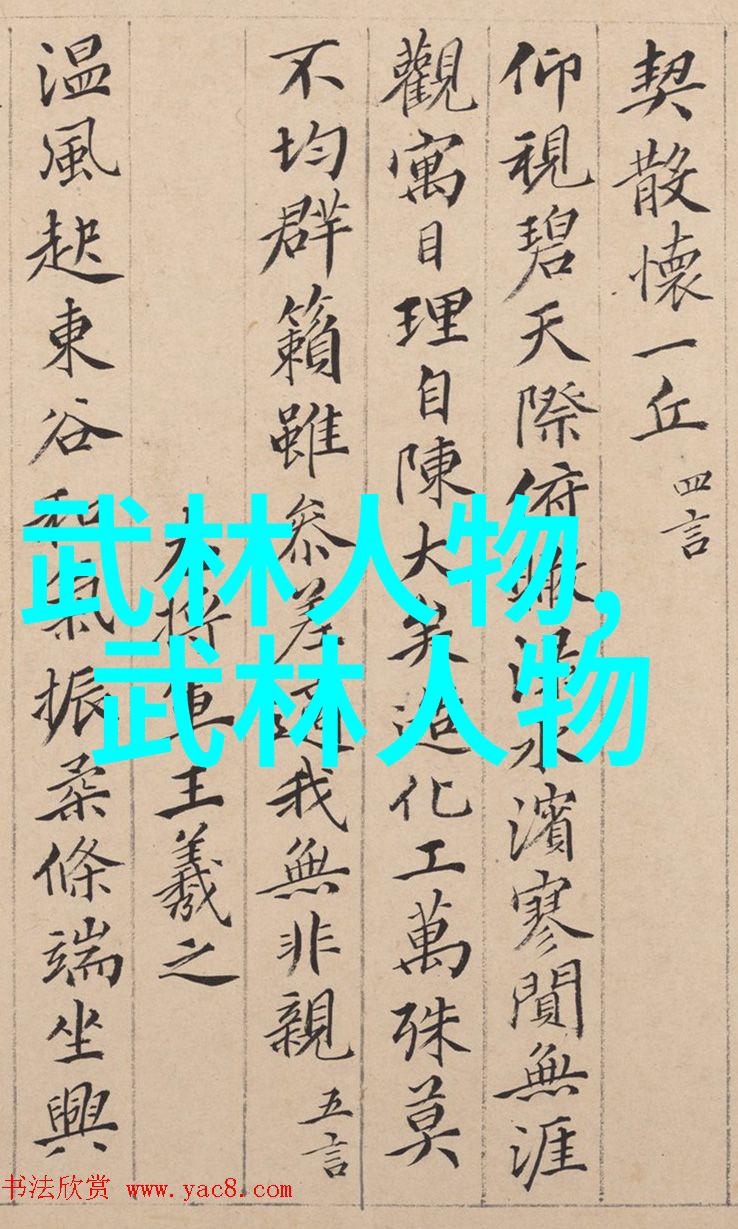 契散懷一丘 四言
仰視碧天際俯瞰淥水濱寥閴無涯
觀寓目理自陳大矣造化工萬殊莫
不均群籟雖參差適我無非親 五言
右將軍王羲之
温風起東谷和氣振柔條端坐興
武林人物,
武林人物
书法欣赏 www.yac8.com